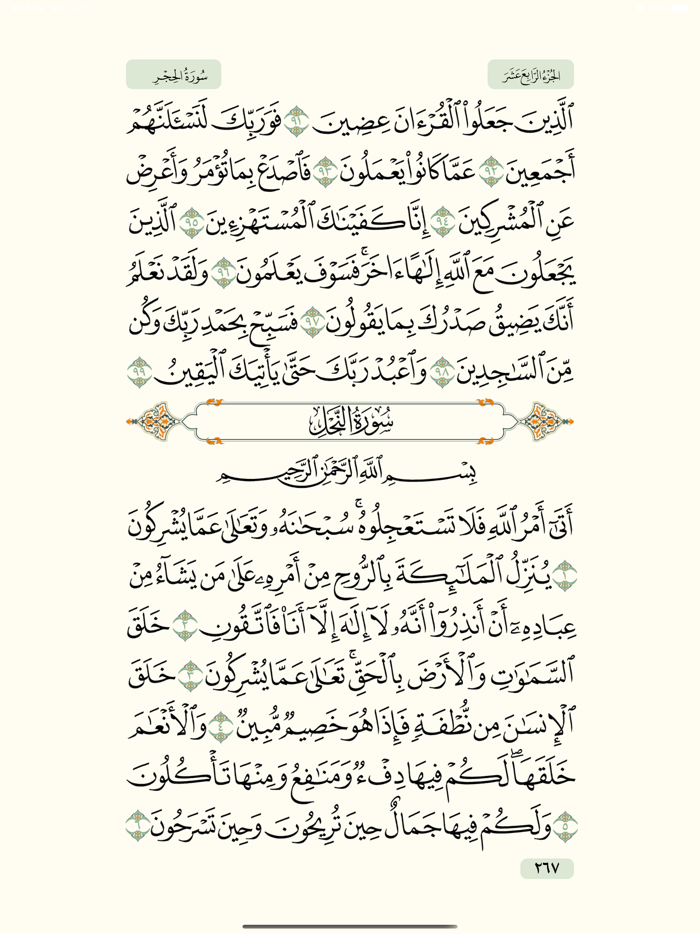 الجُزْءُ الرَّابِعَ عَشَرَ
سُورَةُ الحِجْرِ
ٱلَّذِينَ جَعَلُواْ ٱلْقُرْءَانَ عِضِينَ ٩١ فَوَرَبِّكَ لَنَسْـَٔلَنَّهُمْ
أَجْمَعِينَ ٩٢ عَمَّا كَانُواْ يَعْمَلُونَ ٩٣ فَٱصْدَعْ بِمَا تُؤْمَرُ وَأَعْرِضْ
عَنِ ٱلْمُشْرِكِينَ ٩٤ إِنَّا كَفَيْنَٰكَ ٱلْمُسْتَهْزِءِينَ ٩٥ ٱلَّذِينَ
يَجْعَلُونَ مَعَ ٱللَّهِ إِلَٰهًا ءَاخَرَۚ فَسَوْفَ يَعْلَمُونَ ٩٦ وَلَقَدْ نَعْلَمُ
أَنَّكَ يَضِيقُ صَدْرُكَ بِمَا يَقُولُونَ ٩٧ فَسَبِّحْ بِحَمْدِ رَبِّكَ وَكُن
مِّنَ ٱلسَّٰجِدِينَ ٩٨ وَٱعْبُدْ رَبَّكَ حَتَّىٰ يَأْتِيَكَ ٱلْيَقِينُ ٩٩
سُورَةُ النَّحْلِ
بِسْمِ ٱللَّهِ ٱلرَّحْمَٰنِ ٱلرَّحِيمِ
أَتَىٰٓ أَمْرُ ٱللَّهِ فَلَا تَسْتَعْجِلُوهُۚ سُبْحَٰنَهُۥ وَتَعَٰلَىٰ عَمَّا يُشْرِكُونَ
١ يُنَزِّلُ ٱلْمَلَٰٓئِكَةَ بِٱلرُّوحِ مِنْ أَمْرِهِۦ عَلَىٰ مَن يَشَآءُ مِنْ
عِبَادِهِۦٓ أَنْ أَنذِرُوٓاْ أَنَّهُۥ لَآ إِلَٰهَ إِلَّآ أَنَا۠ فَٱتَّقُونِ ٢ خَلَقَ
ٱلسَّمَٰوَٰتِ وَٱلْأَرْضَ بِٱلْحَقِّۚ تَعَٰلَىٰ عَمَّا يُشْرِكُونَ ٣ خَلَقَ
ٱلْإِنسَٰنَ مِن نُّطْفَةٍ فَإِذَا هُوَ خَصِيمٌ مُّبِينٌ ٤ وَٱلْأَنْعَٰمَ
خَلَقَهَاۖ لَكُمْ فِيهَا دِفْءٌ وَمَنَٰفِعُ وَمِنْهَا تَأْكُلُونَ
٥ وَلَكُمْ فِيهَا جَمَالٌ حِينَ تُرِيحُونَ وَحِينَ تَسْرَحُونَ ٦
٢٦٧